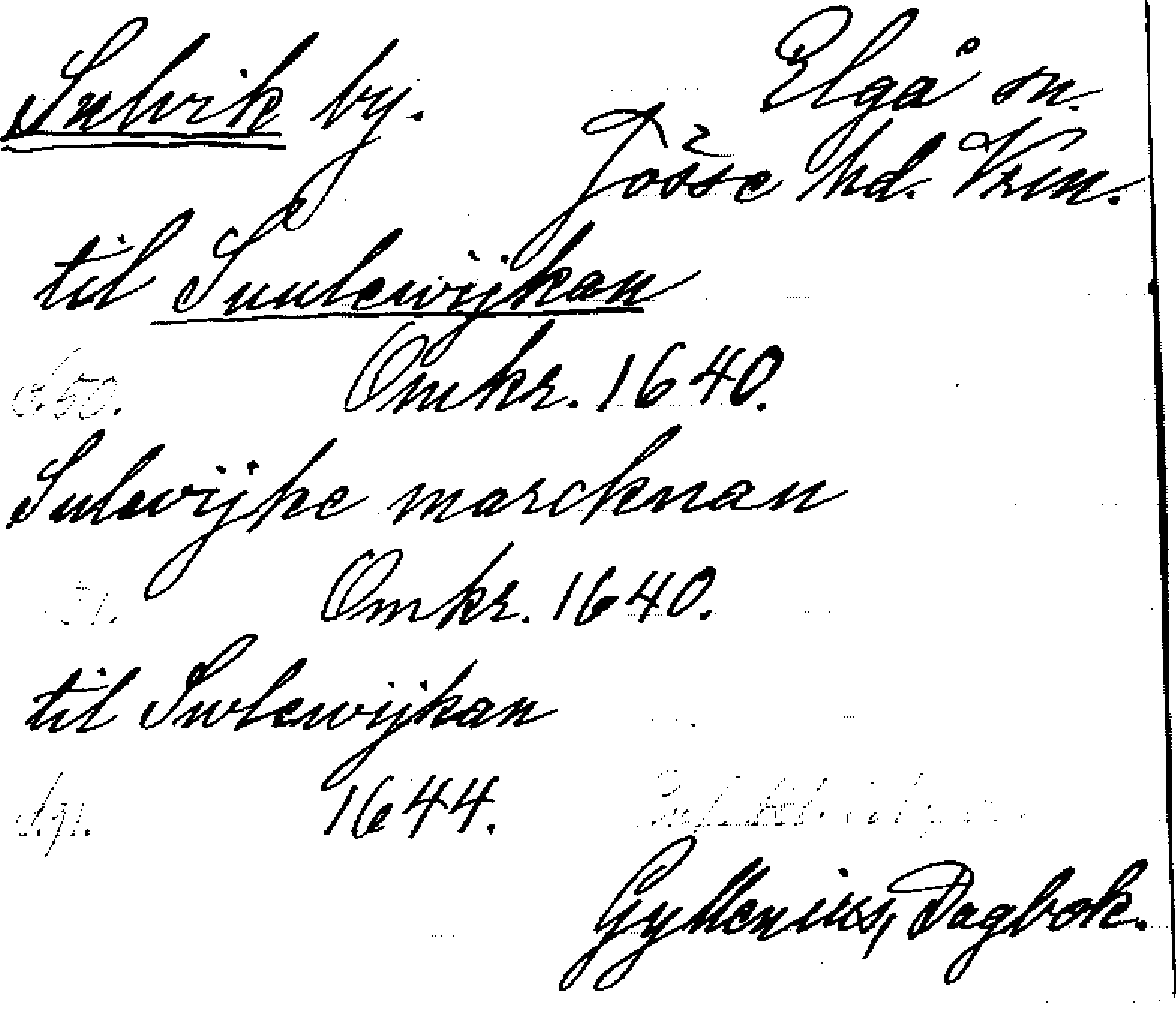 Sulvik by. Elgå sn.
Jösse hd. Vrm.
til Suulewijkan
S. 50. Omkr. 1640.
Sulewijke marcknan
51. Omkr. 1640.
til Swlewijkan
S. 91. 1644.
Gyllenius, Dagbok.